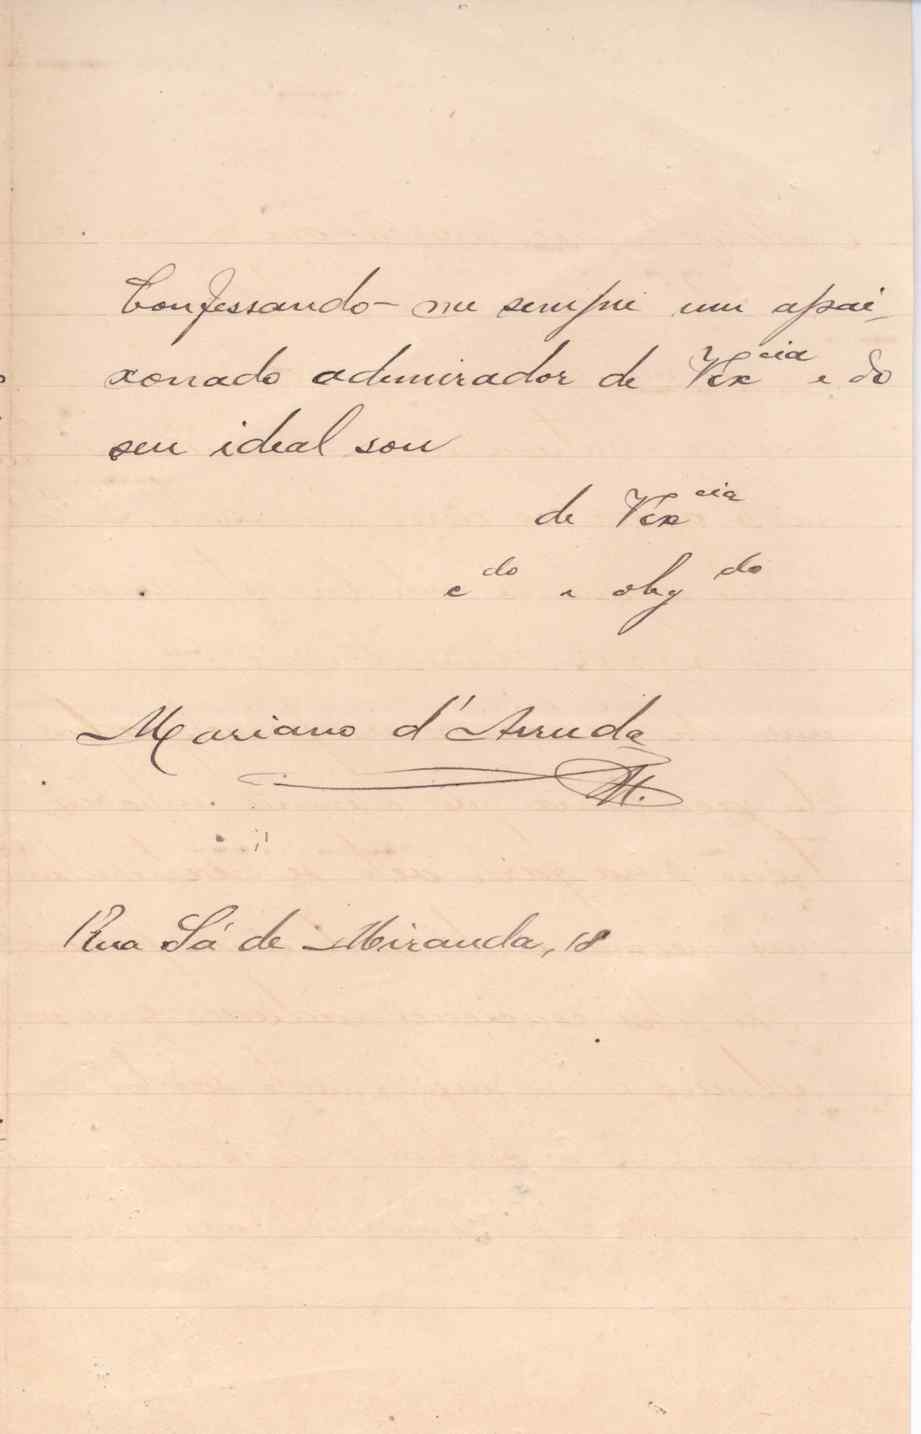 Confessando-me sempre um apai-
xonado admirador de V Excia e do
seu ideal sou
de V Excia
cdo e obgdo
Mariano d'Arruda
Rua Sá de Miranda, 18